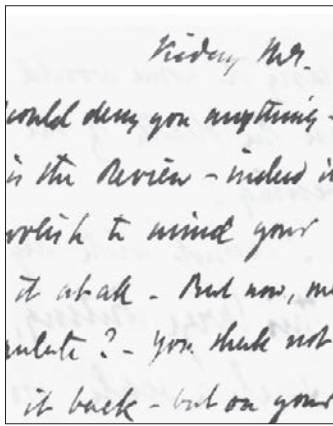 Friday Mr.
would deny you anything -
in the Review - indeed i
oolish to mind your
it at all - But now, m
ulate? - You shall not
it back - but on your